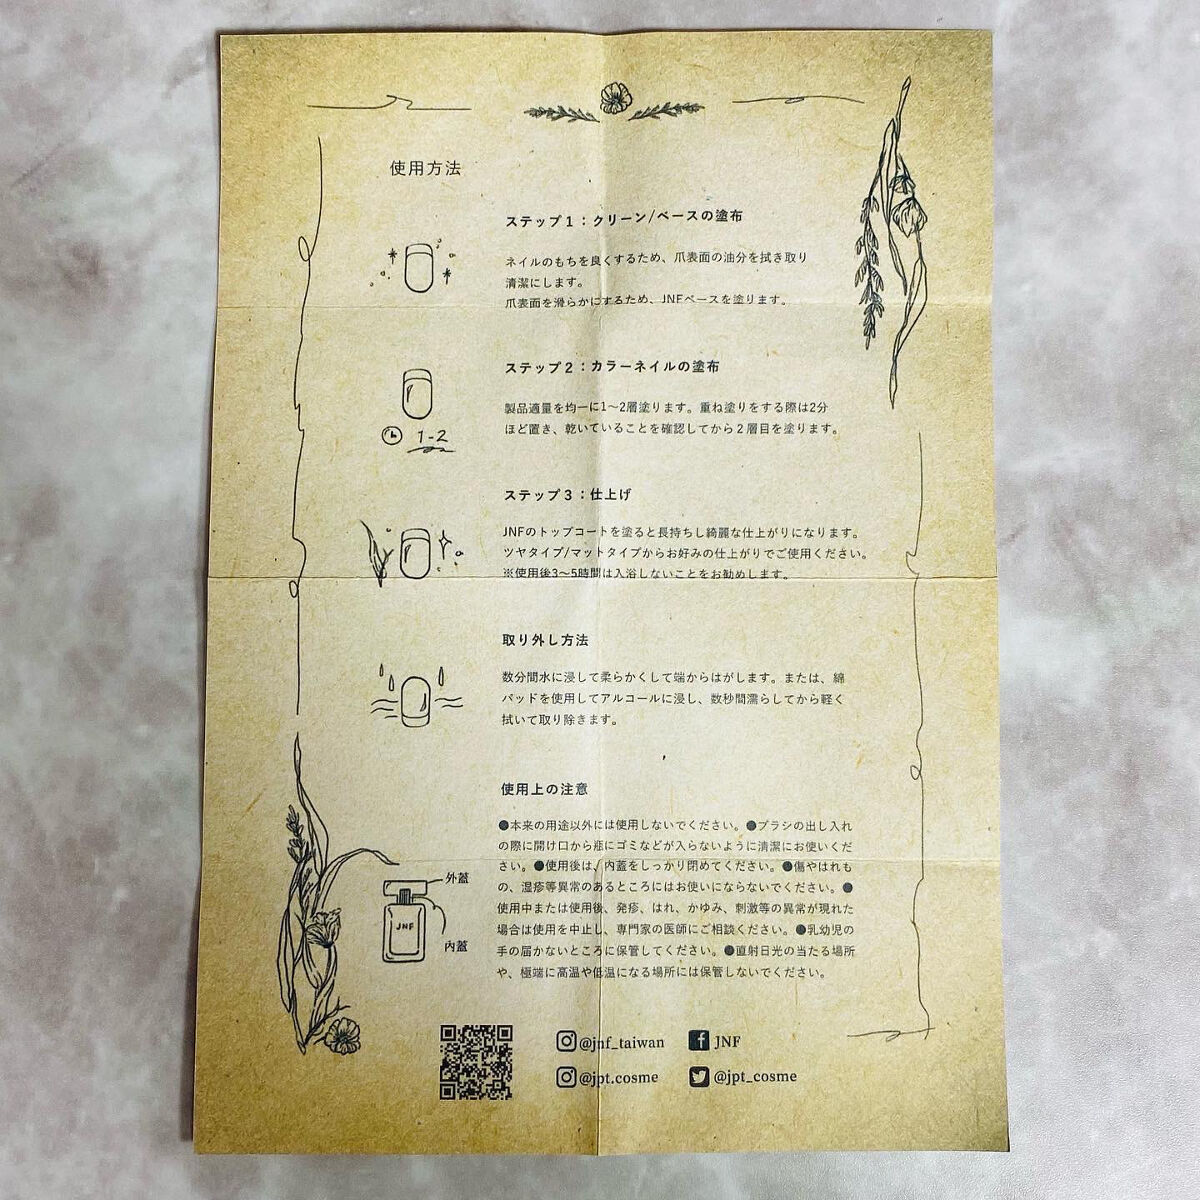 使用方法
ステップ1：クリーン/ベースの塗布
ネイルのもちを良くするため、爪表面の油分を拭き取り
清潔にします。
爪表面を滑らかにするため、JNFベースを塗ります。
ステップ2：カラーネイルの塗布
製品適量を均一に1〜2層塗ります。重ね塗りをする際は2分
ほど置き、乾いていることを確認してから2層目を塗ります。
1-2
ステップ3：仕上げ
JNFのトップコートを塗ると長持ちし綺麗な仕上がりになります。
ツヤタイプ/マットタイプからお好みの仕上がりでご使用ください。
※使用後3〜5時間は入浴しないことをお勧めします。
取り外し方法
数分間水に浸して柔らかくして端からはがします。または、綿
パッドを使用してアルコールに浸し、数秒間濡らしてから軽く
拭いて取り除きます。
使用上の注意
●本来の用途以外には使用しないでください。●ブラシの出し入れ
の際に開け口から瓶にゴミなどが入らないように清潔にお使いくだ
さい。●使用後は、内蓋をしっかり閉めてください。●傷やはれも
の、湿疹等異常のあるところにはお使いにならないでください。●
使用中または使用後、発疹、はれ、かゆみ、刺激等の異常が現れた
場合は使用を中止し、専門家の医師にご相談ください。●乳幼児の
手の届かないところに保管してください。●直射日光の当たる場所
や、極端に高温や低温になる場所には保管しないでください。
外蓋
JNF
内蓋
@jnf_taiwan JNF
@jpt.cosme @jpt_cosme